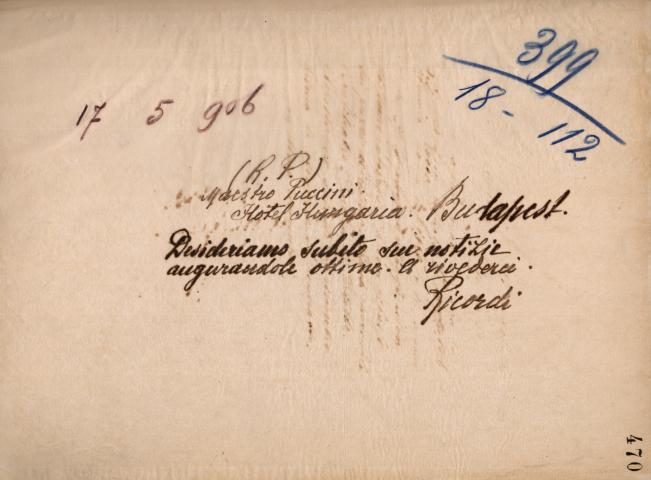 399
18 - 112
17 5 906
(R. P.)
Maestro Puccini.
Hotel Hungaria. Budapest.
Desideriamo subito sue notizie
augurandole ottime. A rivederci.
Ricordi
470